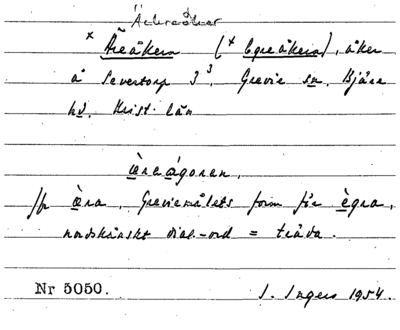 × Äreåkern (× Egreåkern), åker
å Severtorp 3³, Grevie sn. Bjäre
hd. Krist. län
æ̀raágoren,
æ̀ra, Greviemålets form för ègra,
nordskånskt dial-ord = träda.
Nr 5050. I. Ingers 1954.